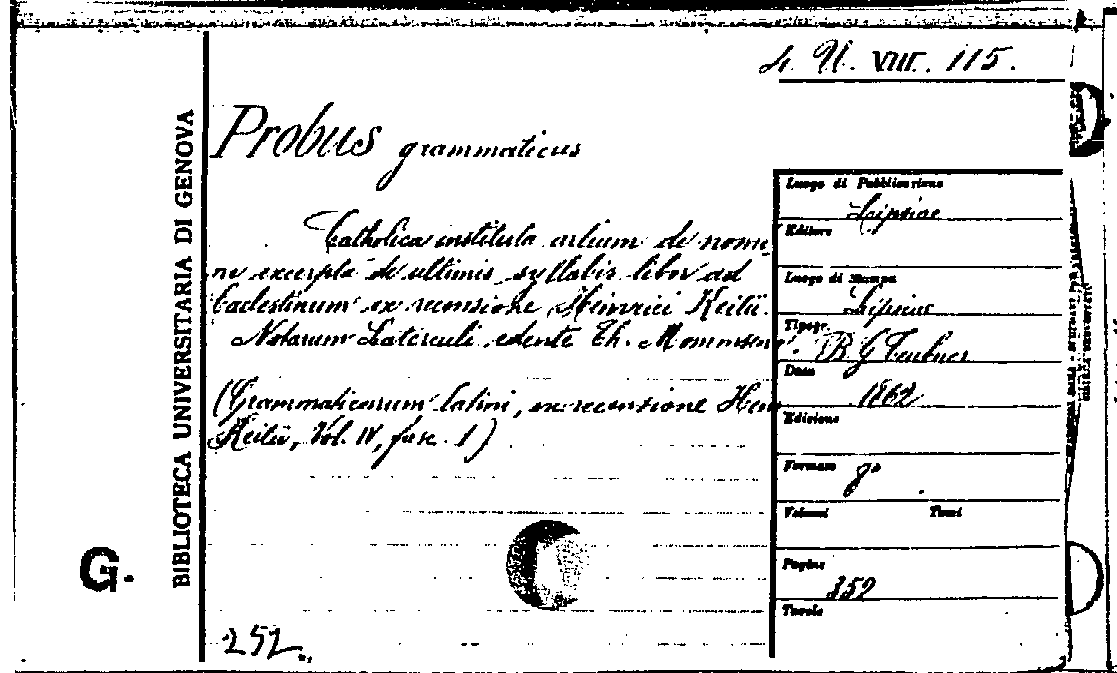 4. U. VIII. 115.
Probus grammaticus
Catholica instituta artium de nomi
ne excerpta de ultimis syllabis liber ad
Caelestinum ex recensione Heinrici Keilii.
Notarum Laterculi edente Th. Mommsen.
(Grammaticorum latini, ex recensione Hen
Keilii, Vol. IV, fasc. 1)
Luogo di Pubblicazione
Lipsiae
Editore
Luogo di Stampa
Lipsiae
Tipogr.
B G Teubner
Data
1862
Edizione
Formato 8°
Volumi Tomi
Pagine
352
Tavole
BIBLIOTECA UNIVERSITARIA DI GENOVA
G.
252